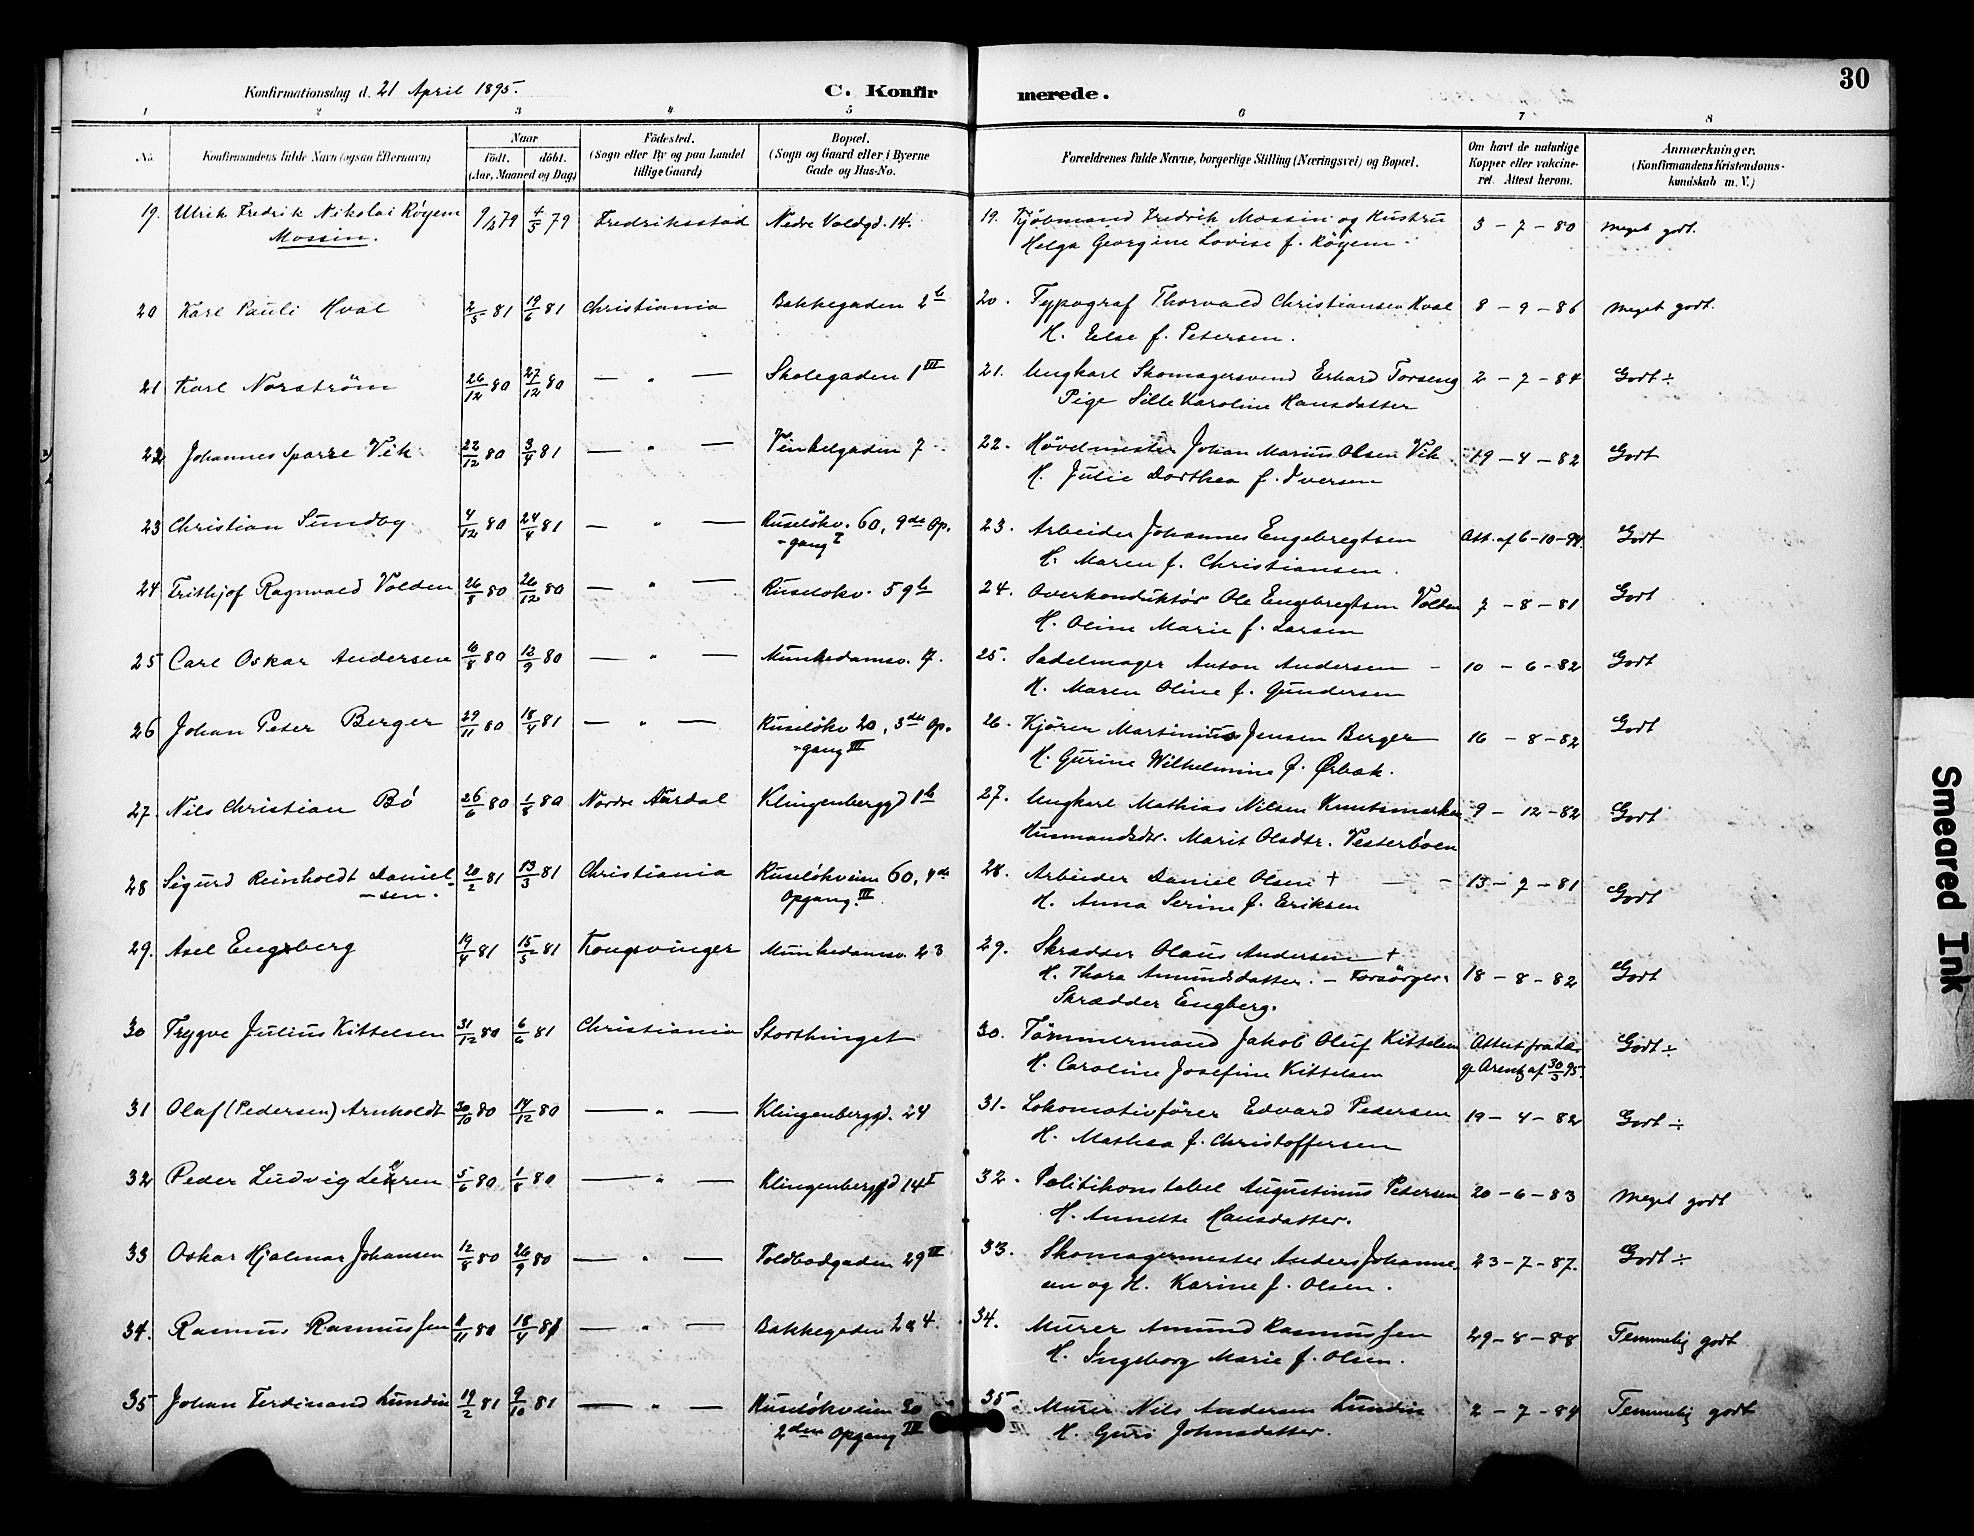 30
Konfirmationsdag d. 21 April 1895.
C. Konfirmerede.
1 2 3 4 5 6 7 8
No. Konfirmandens fulde Navn (ogsaa Efternavn) Naar født. døbt. (Aar, Maaned og Dag) Fødested. (Sogn eller By og paa Landet tillige Gaard) Bopæl. (Sogn og Gaard eller i Byerne Gade og Hus-No. Forældrenes fulde Navne, borgerlige Stilling (Næringsvei) og Bopæl. Om havt de naturlige Kopper eller vakcineret. Attest herom. Anmærkninger. (Konfirmandens Kristendomskundskab m. V.)
19. Ulrik Fredrik Nikolai Röyem 9/12 79 4/5 79 Fredriksstad Nedre Voldgd. 14. 19. Kjöbmand Fredrik Mossin og Hustru 3-7-80 Meget godt.
Mossin. Helga Georgine Lovise f. Röyem.
20 Karl Pauli Hval 2/5 81 19/6 81 Christiania Bakkegaden 2b 20. Typograf Thorvald Christiansen Hval 8-9-86 Meget godt.
H. Else f. Petersen.
21 Karl Norström 26/12 80 27/12 80 — " — Skolegaden 1 III 21. Ungkarl Skomagersvend Erhard Torseng 2-7-84 Godt ÷
Pige Sille Karoline Hansdatter
22 Johannes Sparre Vik 22/12 80 3/4 81 — " — Vinkelgaden 7 22. Hövelmester Johan Marius Olsen Vik 19-4-82 Godt
H. Julie Dorthea f. Iversen
23 Christian Sundby 4/12 80 24/4 81 — " — Ruselökv. 60, 9de Op- 23. Arbeider Johannes Engebregtsen Att. af 6-10-94. Godt
-gang I H. Maren f. Christiansen.
24 Frithjof Ragnvald Volden 26/8 80 26/12 80 — " — Ruselökv. 59b 24. Overkonduktör Ole Engebregtsen Volden 7-8-81 Godt
H. Oline Marie f. Larsen
25 Carl Oskar Andersen 6/8 80 12/9 80 — " — Munkedamsv. 7. 25. Sadelmager Anton Andersen 10-6-82 Godt
H. Maren Oline f. Gundersen
26 Johan Peter Berger 29/11 80 18/4 81 — " — Ruselökv 20, 3die Op- 26. Kjörer Martinius Jensen Berger 16-8-82 Godt
-gang III H. Gurine Wilhelmine f. Ørbak.
27. Nils Christian Bö 26/6 80 1/8 80 Nordre Aurdal Klingenberggd 1b 27. Ungkarl Mathias Nilsen Knutsmarken 9-12-82 Godt
Husmandsdtr. Marit Olsdtr. Vesterböen
28 Sigurd Reinholdt Daniel- 20/2 81 13/3 81 Christiania Ruselökveien 60, 4de 28. Arbeider Daniel Olsen + 13-7-81 Godt
-sen. Opgang. III H. Anna Serine f. Eriksen
29. Axel Engsberg 19/4 81 15/5 81 Kongsvinger Munkedamsv. 23 29. Skrædder Olaus Andersen + 18-8-82 Godt
H. Thora Amundsdatter. - Forsörger:
Skrædder Engberg.
30 Trygve Julius Kittelsen 31/12 80 6/6 81 Christiania Storthinget 30. Tömmermand Jakob Oluf Kittelsen Attest fra Læ- Godt ÷
H. Caroline Josefine Kittelsen ge Arentz af 30/3 95.
31 Olaf (Pedersen) Arnholdt 30/10 80 14/12 80 — " — Klingenberggd. 24 31. Lokomotivförer Edvard Pedersen 19-4-82 Godt ÷
H. Mathea f. Christoffersen
32 Peder Ludvig 5/6 80 1/8 80 — " — Klingenberggd 14 I 32. Politikonstabel Augustinus Petersen 20-6-83 Meget godt
H. Annette Hansdatter.
33 Oskar Hjalmar Johansen 12/8 80 26/9 80 — " — Toldbodgaden 29 III 33. Skomagermester Anders Johanne- 23-7-87. Godt ÷
sen og H. Karine f. Olsen.
34. Rasmus Rasmussen 8/11 80 18/4 81 — " — Bakkegaden 2a 4. 34. Murer Amund Rasmussen 29-8-88 Temmelig godt
H. Ingeborg Marie f. Olsen.
35 Johan Ferdinand Lundin 19/2 81 9/10 81 — " — Ruselökveien 30 35. Murer Nils Andersen Lundin 2-7-84 Temmelig godt
2den Opgang IV H. Guri Johnsdatter.
Smeared Ink